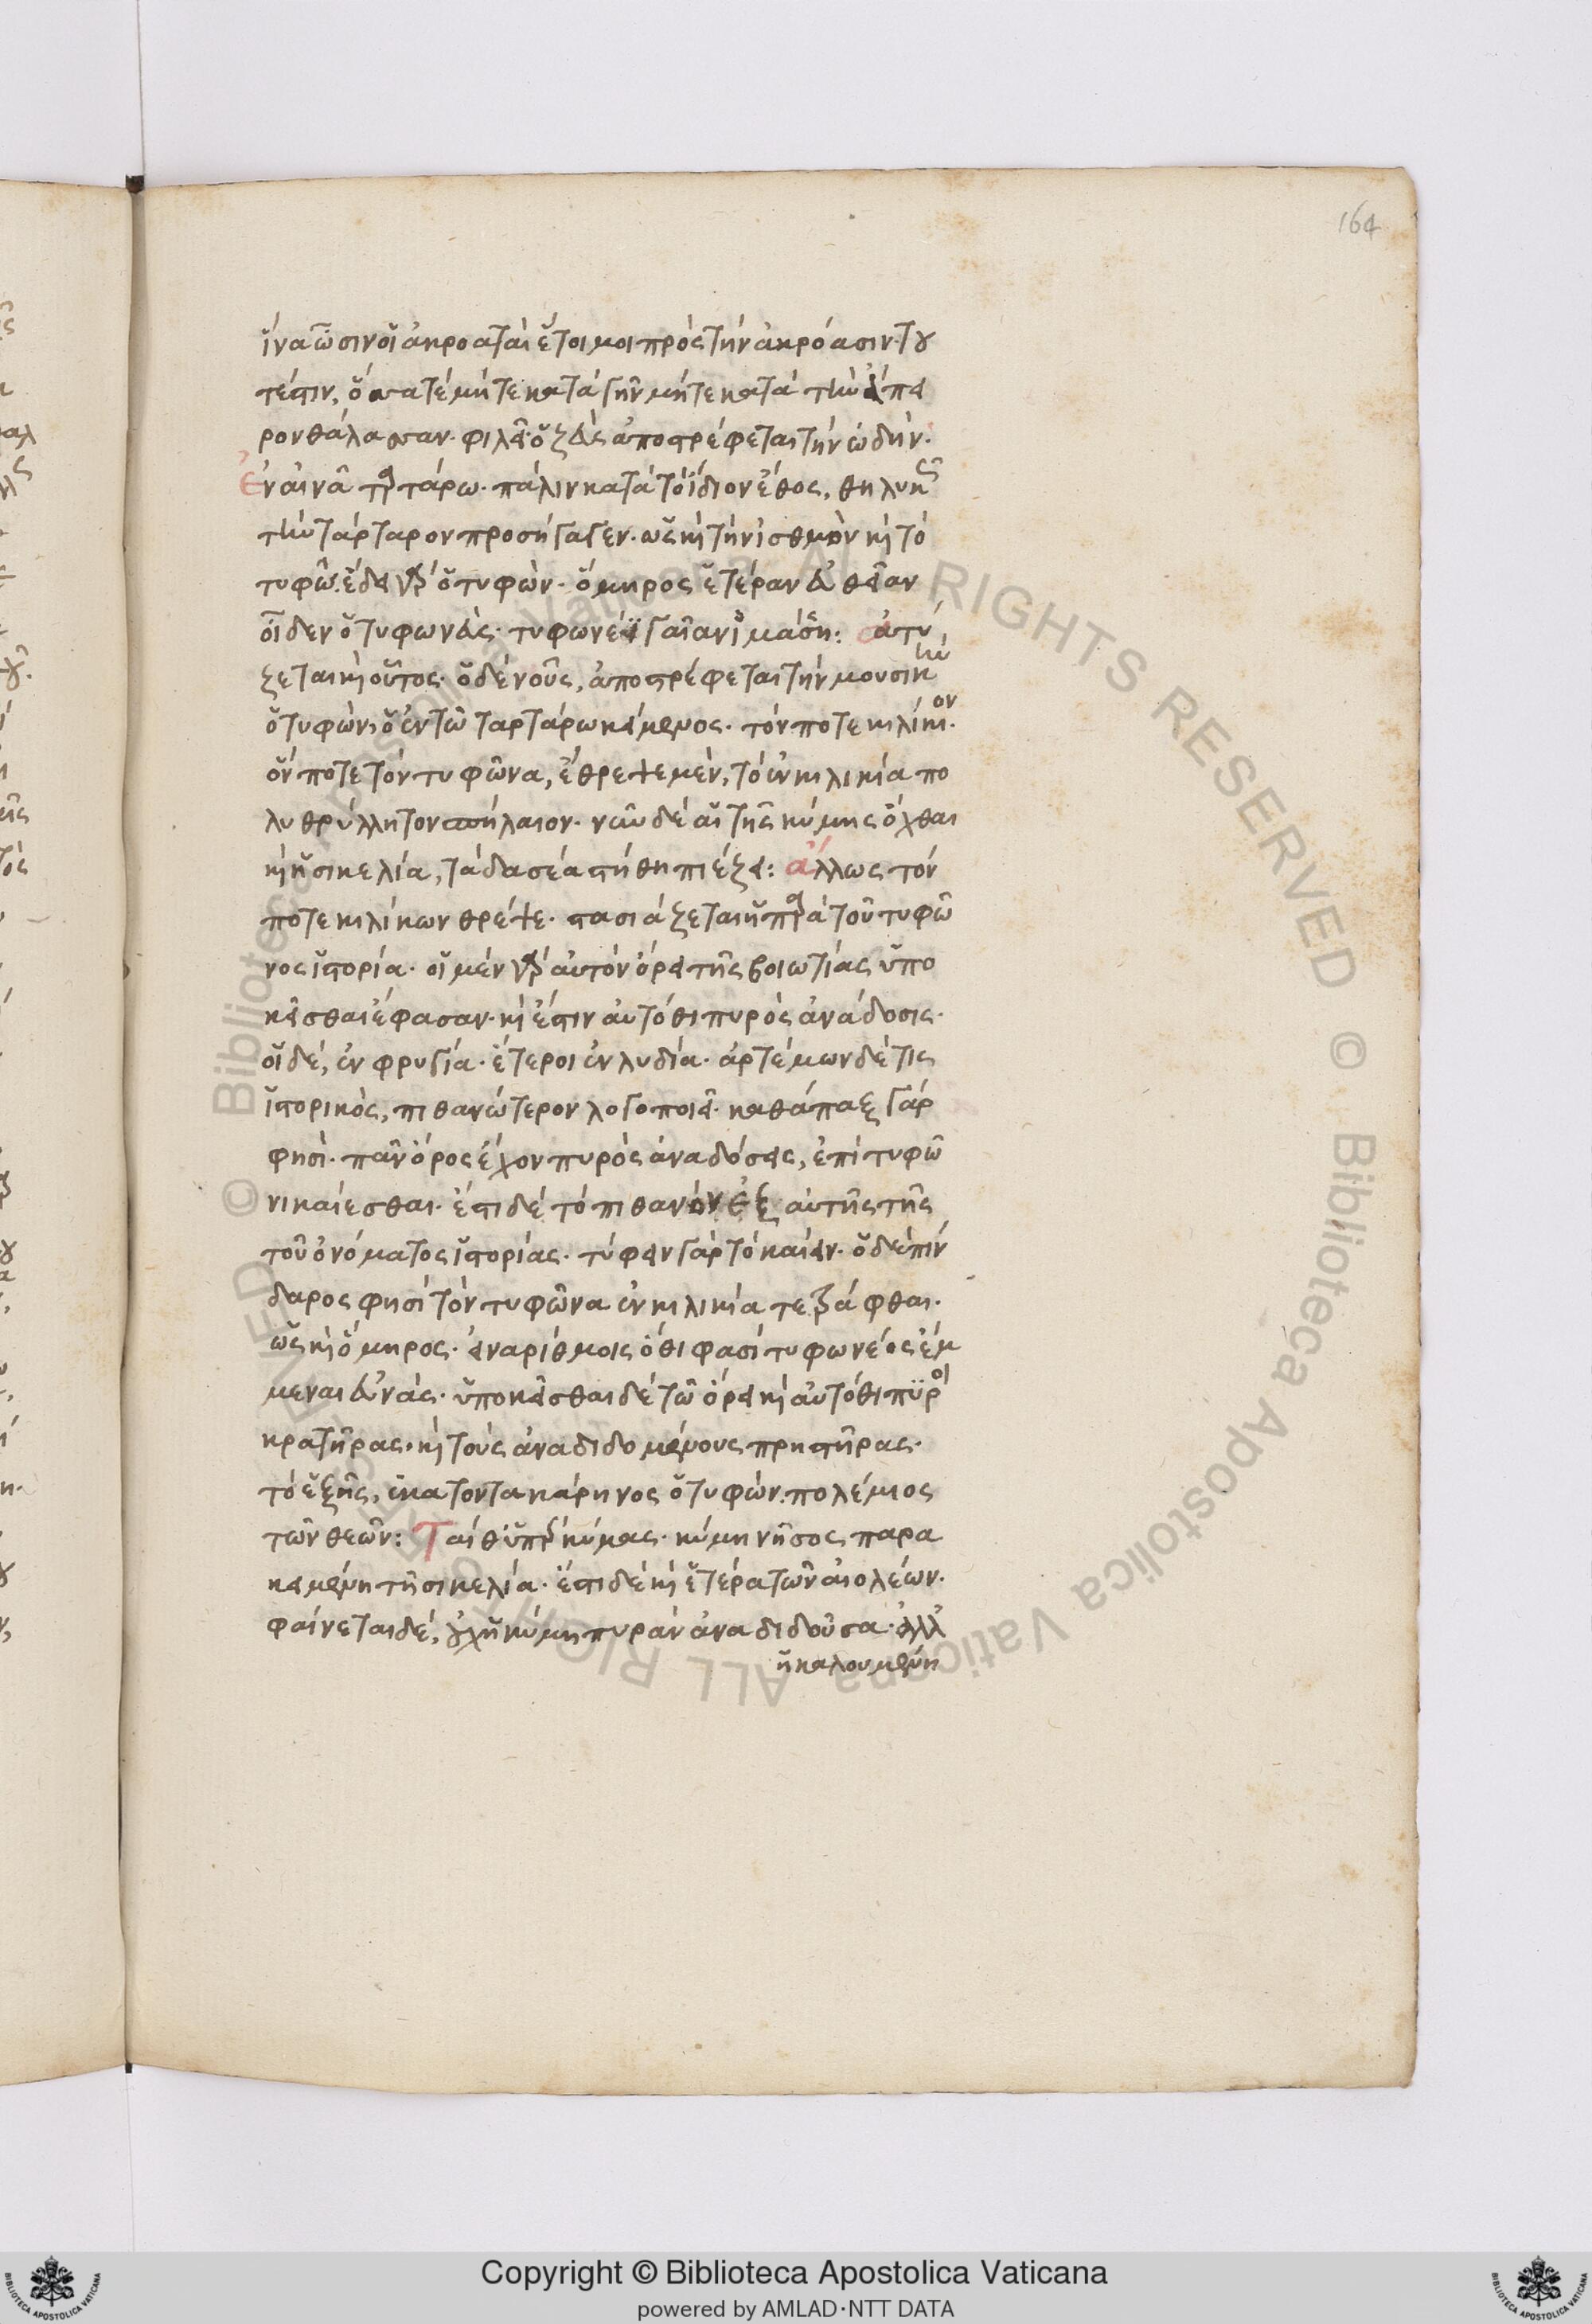 164
ἵνα ὦσιν οἱ ἀκροαταὶ ἕτοιμοι πρὸς τὴν ἀκρόασιν. του
τέστιν, ὅσα τε μήτε κατὰ γῆν μήτε κατὰ τὴν ἄπει
ρον θάλασσαν. φιλεῖ ὁ ζεὺς ἀποστρέφεται τὴν ὠδήν.
Ἐν αἰνᾶ ταρτάρω. πάλιν κατὰ τὸ ἴδιον ἔθος, θηλυκῶς
τὴν τάρταρον προσήγαγεν. ὡς καὶ τὴν ἰσθμὸν καὶ τὸ
τυφῶ. ἔδει γὰρ ὁ τυφών. ὅμηρος ἑτέραν εὐθεῖαν
οἶδεν ὁ τυφωνεύς. τυφωνέϊ γαῖαν ἱμάσση: ἀτύ
ζεται καὶ οὗτος. ὁδένους, ἀποστρέφεται τὴν μουσικὴν
ὁ τυφών, ὁ ἐν τῶ ταρτάρω κείμενος. τόν ποτε κιλίκιον.
ὅν ποτε τὸν τυφῶνα, ἔθρεψε μὲν, τὸ ἐν κιλικία πο
λυθρύλλητον σπήλαιον. νῦν δὲ αἱ τῆς κύμης ὄχθαι
καὶ ἡ σικελία, τὰ δασέα στήθη πιέζει: ἄλλως τόν
ποτε κιλίκων θρέψε. στασιάζεται ἡ παρὰ τοῦ τυφῶ
νος ἱστορία. οἱ μὲν γὰρ αὐτὸν ὄρει τῆς βοιωτίας ὑπο
κεῖσθαι ἔφασαν. καὶ ἔστιν αὐτόθι πυρὸς ἀνάδοσις.
οἱ δέ, ἐν φρυγία. ἕτεροι ἐν λυδία. ἀρτέμων δέ τις
ἱστορικὸς, πιθανώτερον λογοποιεῖ. καθάπαξ γάρ
φησὶ. πᾶν ὄρος ἔχον πυρὸς ἀναδόσεις, ἐπὶ τυφῶ
νι καίεσθαι. ἔστι δὲ τὸ πιθανὸν ἐξ αὐτῆς τῆς
τοῦ ὀνόματος ἱστορίας. τύφειν γὰρ τὸ καίειν. ὁ δὲ πίν
δαρος φησὶ τὸν τυφῶνα ἐν κιλικία τετάφθαι.
ὡς καὶ ὅμηρος. εἰναρίθμοις ὅθι φασὶ τυφωνέος ἔμ
μεναι εὐνάς. ὑποκεῖσθαι δὲ τῶ ὄρει καὶ αὐτόθι πυρὸς
κρατῆρας. καὶ τοὺς ἀναδιδομένους πρηστῆρας.
τὸ ἑξῆς, ἑκατοντακάρηνος ὁ τυφών. πολέμιος
τῶν θεῶν: Ταί θ' ὑπὲρ κύμας. κύμη νῆσος παρα
κειμένη τῆ σικελία. ἔστι δὲ καὶ ἑτέρα τῶν αἰολέων.
φαίνεται δέ, οὐχ ἡ κύμη πυρὰν ἀναδιδοῦσα. ἀλλ'
ἡ καλουμένη
Copyright © Biblioteca Apostolica Vaticana
powered by AMLAD·NTT DATA